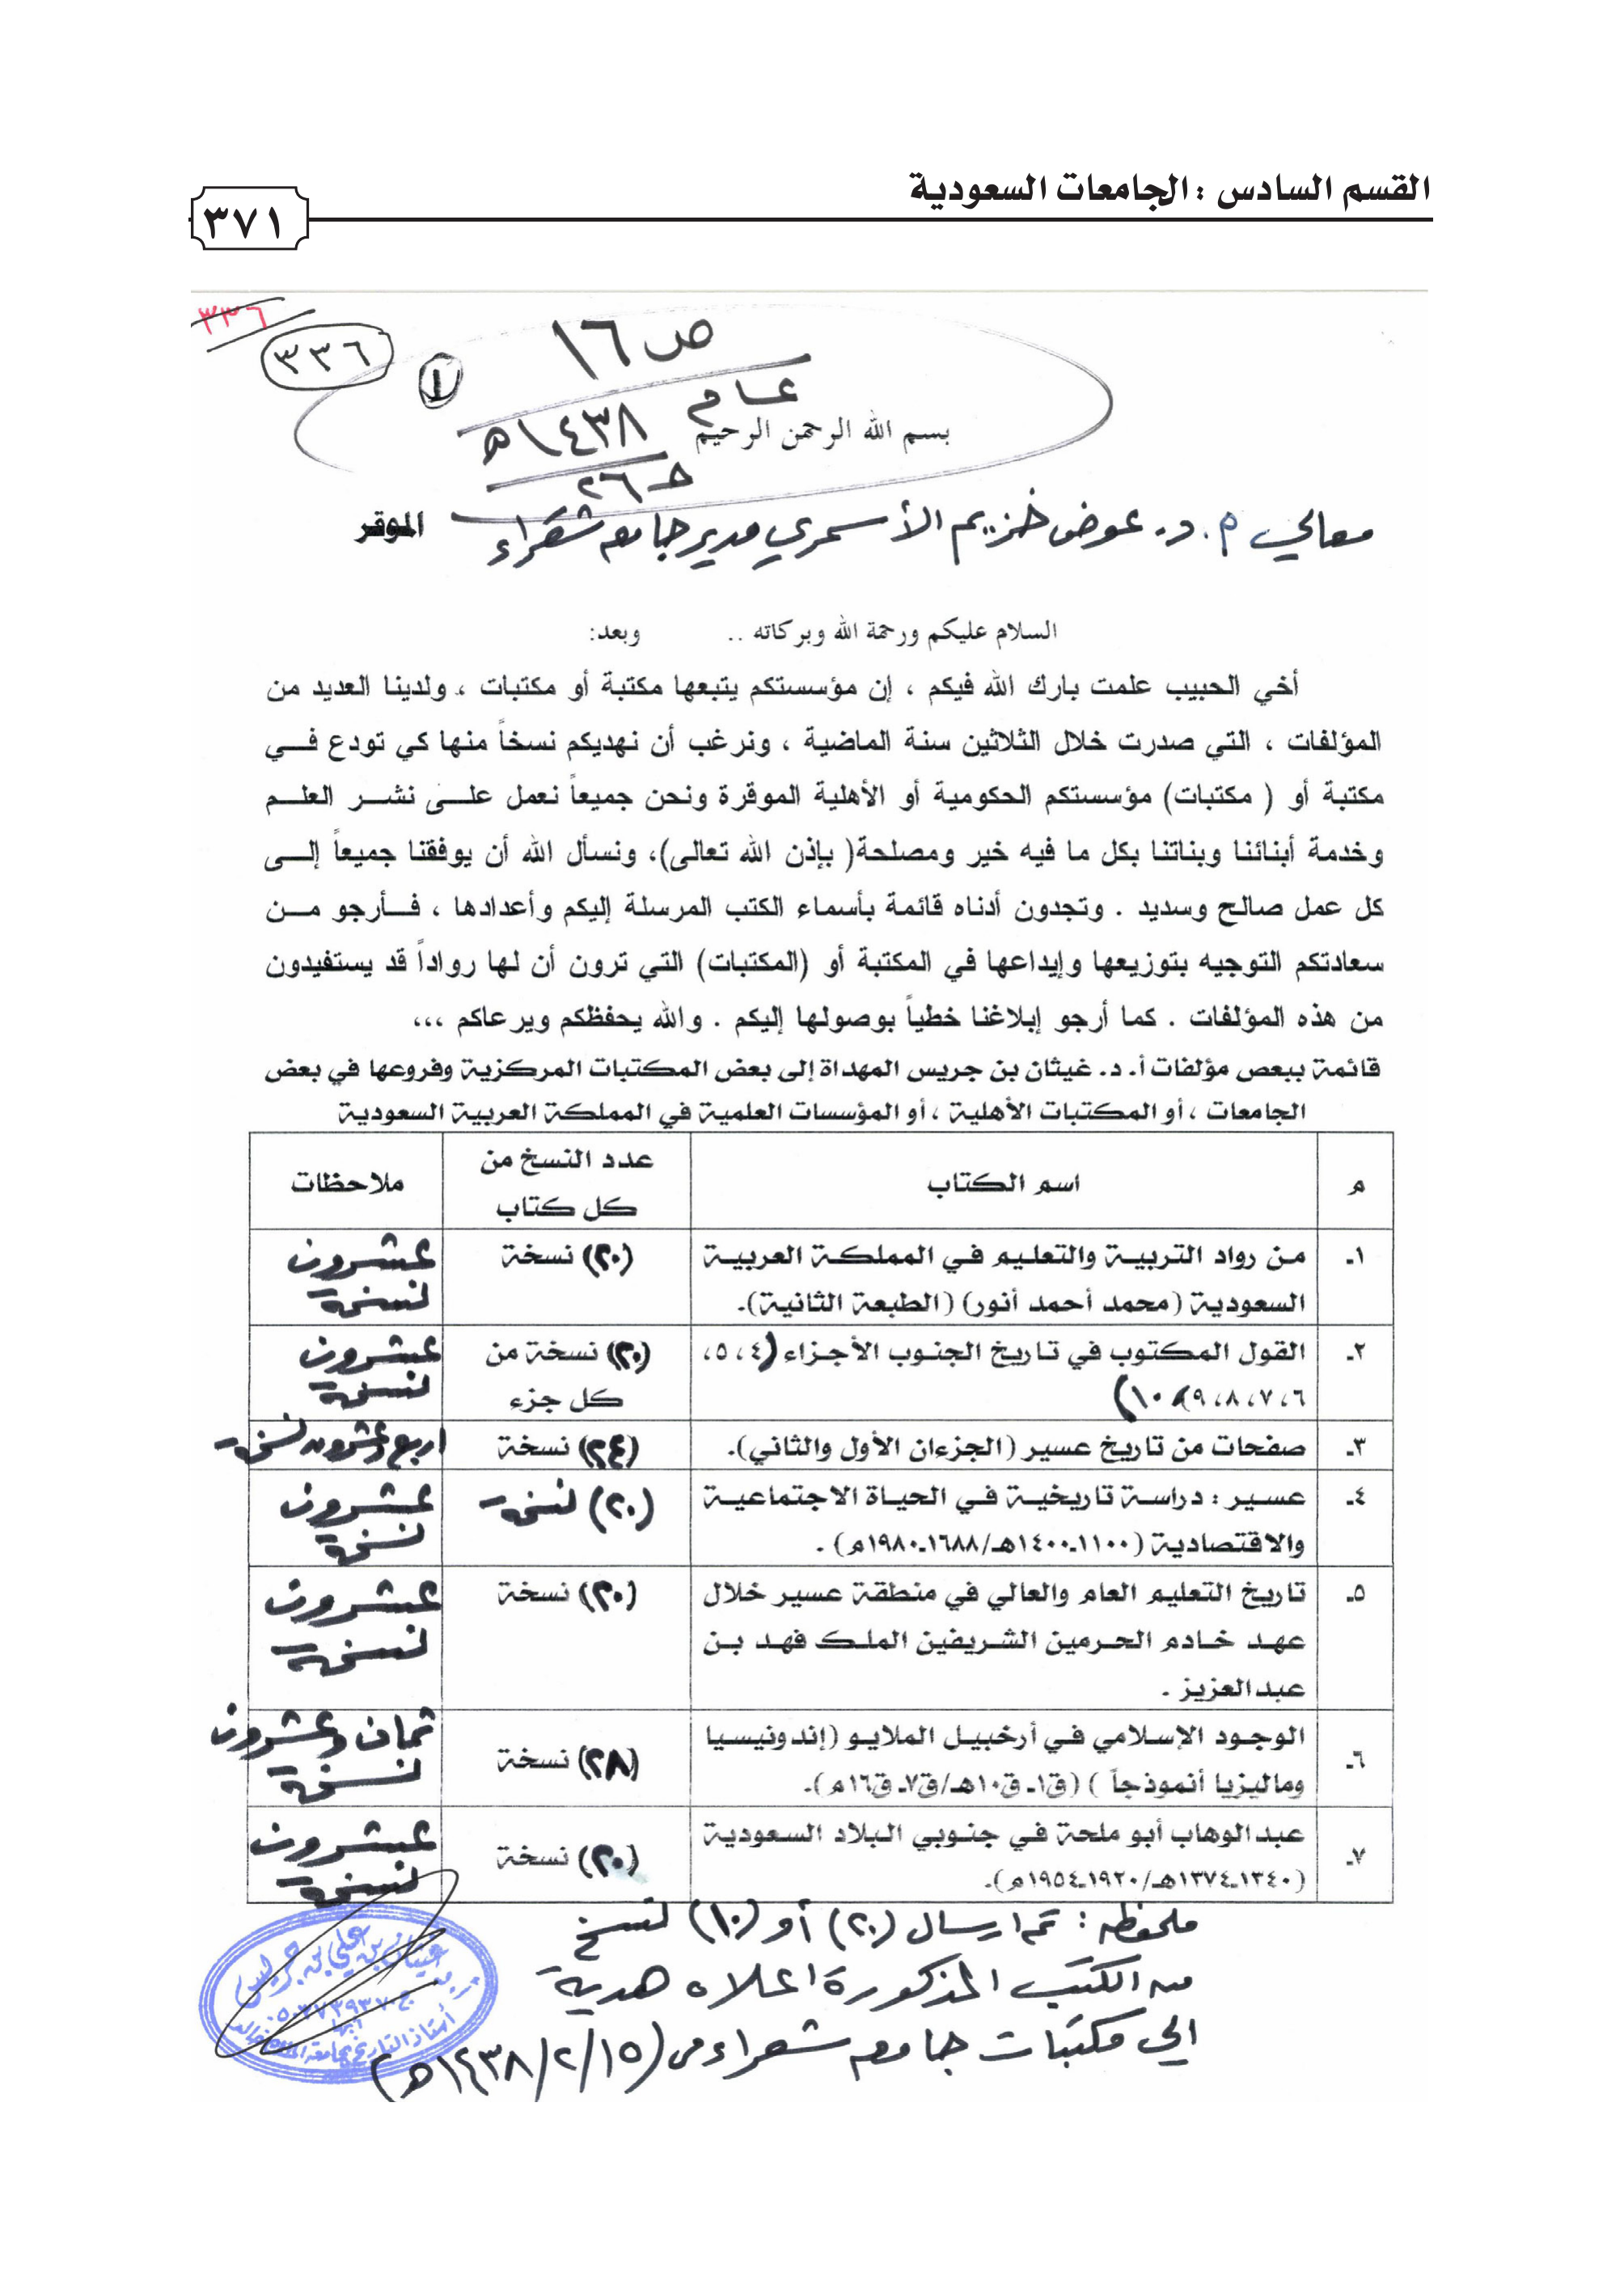 القسم السادس : الجامعات السعودية
٣٧١
٣٣٦
٣٣٦
ص ١٦
١
عام
١٤٣٨هـ
بسم الله الرحمن الرحيم
حـ ٢٦
معالي م . د. عوض خزيم الأسمري مدير جامعة شقراء الموقر
السلام عليكم ورحمة الله وبركاته .. وبعد:
أخي الحبيب علمت بارك الله فيكم ، إن مؤسستكم يتبعها مكتبة أو مكتبات ، ولدينا العديد من
المؤلفات ، التي صدرت خلال الثلاثين سنة الماضية ، ونرغب أن نهديكم نسخاً منها كي تودع في
مكتبة أو ( مكتبات) مؤسستكم الحكومية أو الأهلية الموقرة ونحن جميعاً نعمل على نشر العلم
وخدمة أبنائنا وبناتنا بكل ما فيه خير ومصلحة( بإذن الله تعالى)، ونسأل الله أن يوفقنا جميعاً إلى
كل عمل صالح وسديد . وتجدون أدناه قائمة بأسماء الكتب المرسلة إليكم وأعدادها ، فأرجو من
سعادتكم التوجيه بتوزيعها وإيداعها في المكتبة أو (المكتبات) التي ترون أن لها رواداً قد يستفيدون
من هذه المؤلفات . كما أرجو إبلاغنا خطياً بوصولها إليكم . والله يحفظكم ويرعاكم ،،،
قائمة ببعض مؤلفات أ. د. غيثان بن جريس المهداة إلى بعض المكتبات المركزية وفروعها في بعض
الجامعات ، أو المكتبات الأهلية ، أو المؤسسات العلمية في المملكة العربية السعودية
م اسم الكتاب عدد النسخ من كل كتاب ملاحظات
١ـ من رواد التربية والتعليم في المملكة العربية (٢٠) نسخة عشرون
السعودية (محمد أحمد أنور) (الطبعة الثانية). نسخة
٢ـ القول المكتوب في تاريخ الجنوب الأجزاء (٤، ٥، (٢٠) نسخة من عشرون
٦، ٧، ٨، ٩، ١٠) كل جزء نسخة
٣ـ صفحات من تاريخ عسير (الجزءان الأول والثاني). (٢٤) نسخة اربع وعشرون نسخة
٤ـ عسير : دراسة تاريخية في الحياة الاجتماعية (٢٠) نسخة عشرون
والاقتصادية (١١٠٠ـ١٤٠٠هـ/١٦٨٨ـ١٩٨٠م) . نسخة
٥ـ تاريخ التعليم العام والعالي في منطقة عسير خلال (٢٠) نسخة عشرون
عهد خادم الحرمين الشريفين الملك فهد بن نسخة
عبدالعزيز .
٦ـ الوجود الإسلامي في أرخبيل الملايو (إندونيسيا (٢٨) نسخة ثمان وعشرون
وماليزيا أنموذجاً ) (ق١ـ ق١٠هـ/ق٧ـ ق١٦م). نسخة
٧ـ عبدالوهاب أبو ملحة في جنوبي البلاد السعودية (٢٠) نسخة عشرون
(١٣٤٠ـ١٣٧٤هـ/١٩٢٠ـ١٩٥٤م). نسخة
ملحظه : تم ارسال (٢٠) أو (١٠) نسخ
من الكتب المذكورة اعلاه هدية
الى مكتبات جامعة شقراء في (١٤٣٨/٢/١٥هـ)
أ.د. غيثان بن علي بن جريس
أبها
أستاذ التاريخ بجامعة الملك خالد